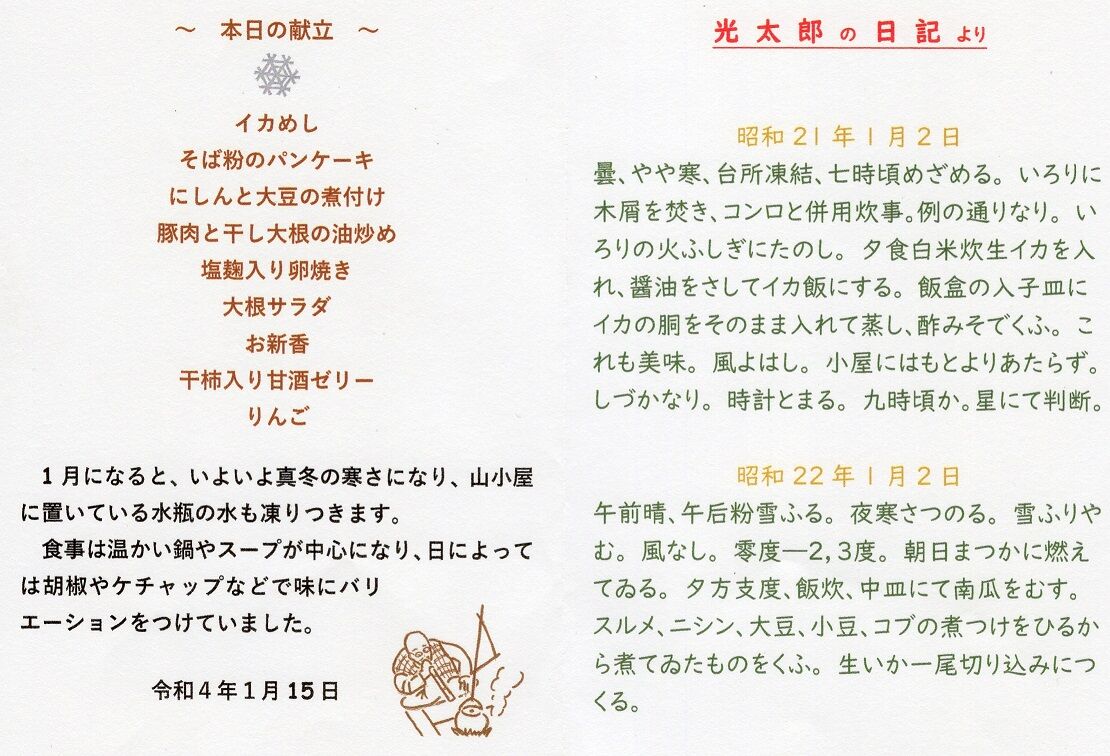 ～ 本日の献立 ～
イカめし
そば粉のパンケーキ
にしんと大豆の煮付け
豚肉と干し大根の油炒め
塩麹入り卵焼き
大根サラダ
お新香
干柿入り甘酒ゼリー
りんご
1月になると、いよいよ真冬の寒さになり、山小屋
に置いている水瓶の水も凍りつきます。
食事は温かい鍋やスープが中心になり、日によって
は胡椒やケチャップなどで味にバリ
エーションをつけていました。
令和4年1月15日
光太郎の日記より
昭和21年1月2日
曇、やや寒、台所凍結、七時頃めざめる。いろりに
木屑を焚き、コンロと併用炊事。例の通りなり。い
ろりの火ふしぎにたのし。夕食白米炊生イカを入
れ、醤油をさしてイカ飯にする。飯盒の入子皿に
イカの胴をそのまま入れて蒸し、酢みそでくふ。こ
れも美味。風よはし。小屋にはもとよりあたらず。
しづかなり。時計とまる。九時頃か。星にて判断。
昭和22年1月2日
午前晴、午后粉雪ふる。夜寒さつのる。雪ふりや
む。風なし。零度―2,3度。朝日まつかに燃え
てゐる。夕方支度、飯炊、中皿にて南瓜をむす。
スルメ、ニシン、大豆、小豆、コブの煮つけをひるか
ら煮てゐたものをくふ。生いか一尾切り込みにつ
くる。